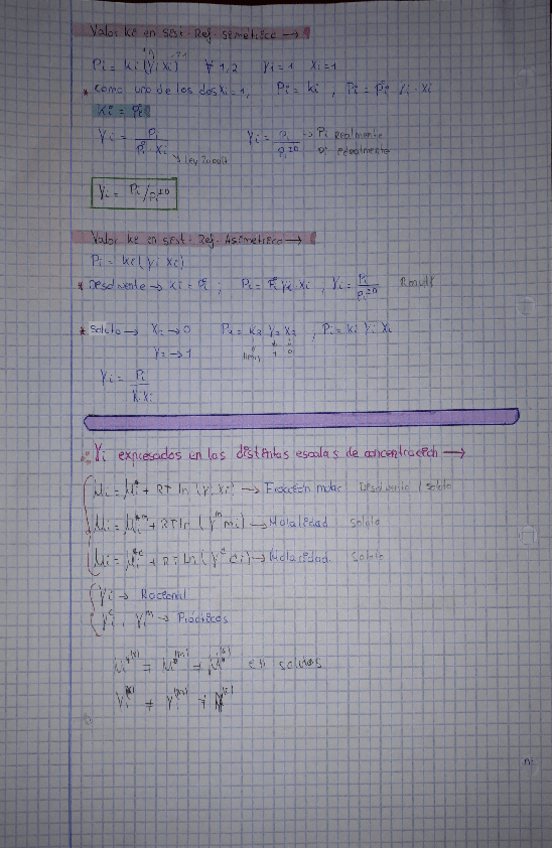 Valor ki en sist. Ref. Simétrico →
Pi = ki (γi xi) ∀ 1,2 γi = 1 xi = 1
* como uno de los dos xi = 1, Pi = ki , Pi = Pi* γi · xi
ki = Pi*
γi = Pi / Pi* · xi γi = Pi / Pi^ID → Pi realmente
↘ Ley Raoult Pi idealmente
γi = Pi / Pi^ID
Valor ki en sist. Ref. Asimétrico →
Pi = ki (γi xi)
* Disolvente → ki = Pi* ; Pi = Pi* γi xi , γi = Pi / Pi^ID Raoult
* Soluto → x2 → 0 P2 = k2 γ2 x2 , Pi = ki γi xi
γ2 → 1 1 0
γi = Pi / ki xi
γi expresados en las distintas escalas de concentración →
μi = μi* + RT ln (γi xi) → Fracción molar Disolvente / soluto
μi = μi*m + RT ln (γ^m mi) → Molalidad soluto
μi = μi*c + RT Ln (γ^c ci) → Molaridad. soluto
γi → Racional
γi^c , γi^m → Prácticos
μi*(x) ≠ μi*(m) ≠ μi*(c) en solutos
γi^(x) ≠ γi^(m) ≠ γi^(c)